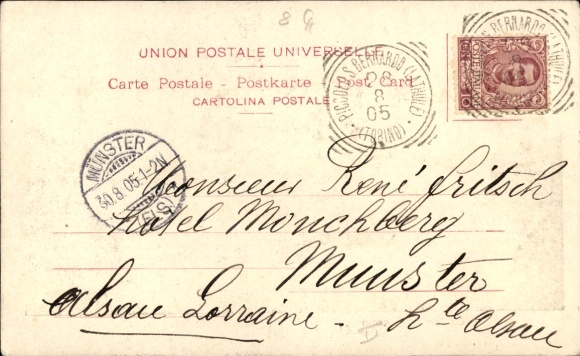 8
UNION POSTALE UNIVERSELLE
Carte Postale - Postkarte - Post Card
CARTOLINA POSTALE
PICCOLO S. BERNARDO (LATHUILE)
28
8
05
(TORINO)
S. BERNARDO (LATHUILE)
MÜNSTER
30.8.05.1-2N
(ELS)
Monsieur René Fritsch
Hotel Monchberg
Munster
Alsace Lorraine - Hte Alsace